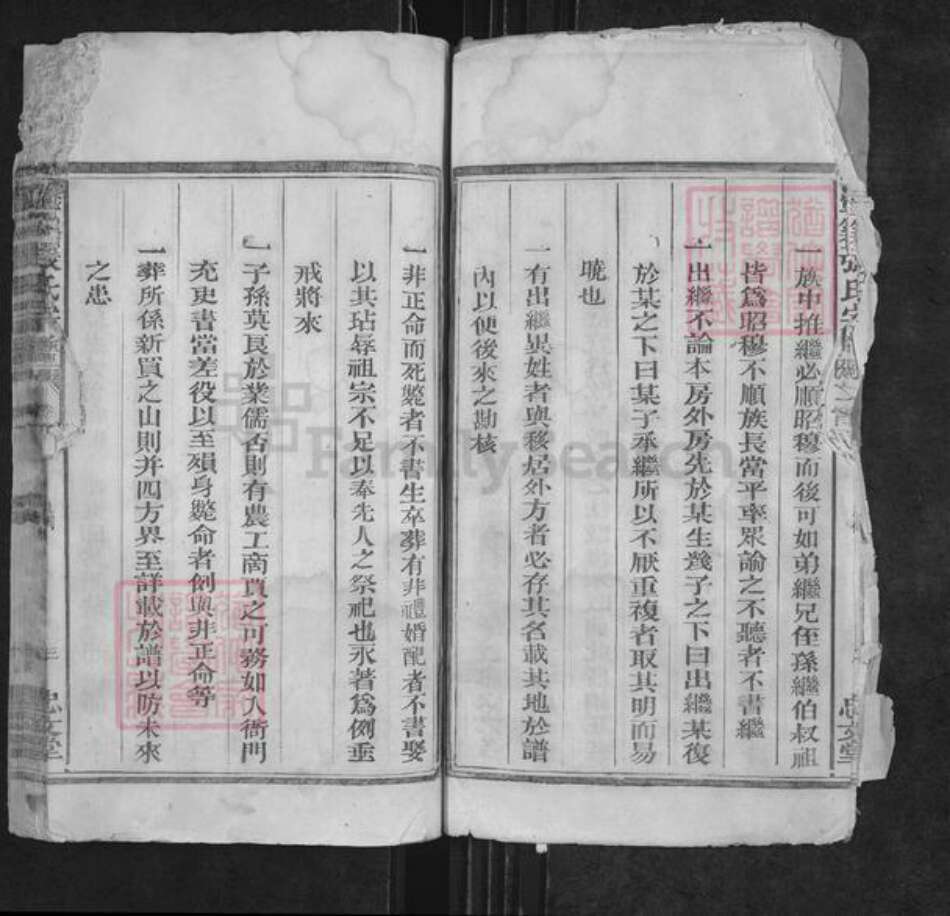 一族中推繼必順昭穆而後可如弟繼兄侄孫繼伯叔祖
皆爲昭穆不順族長當平率眾諭之不聽者不書繼
一出繼不論本房外房先於某生幾子之下曰出繼某復
於某之下曰某子承繼所以不厭重複者取其明而易
曉也
一有出繼異姓者與移居外方者必存其名載其地於譜
內以便後來之勘核
一非正命而死斃者不書生卒葬有非禮婚配者不書娶
以其玷辱祖宗不足以奉先人之祭祀也永著爲例垂
戒將來
一子孫莫良於業儒否則有農工商賈之可務如入衙門
充吏書當差役以至殞身斃命者例與非正命等
一葬所係新買之山則并四方界至詳載於譜以防未來
之患
張氏宗
忠文堂
忠文堂
FamilySearch